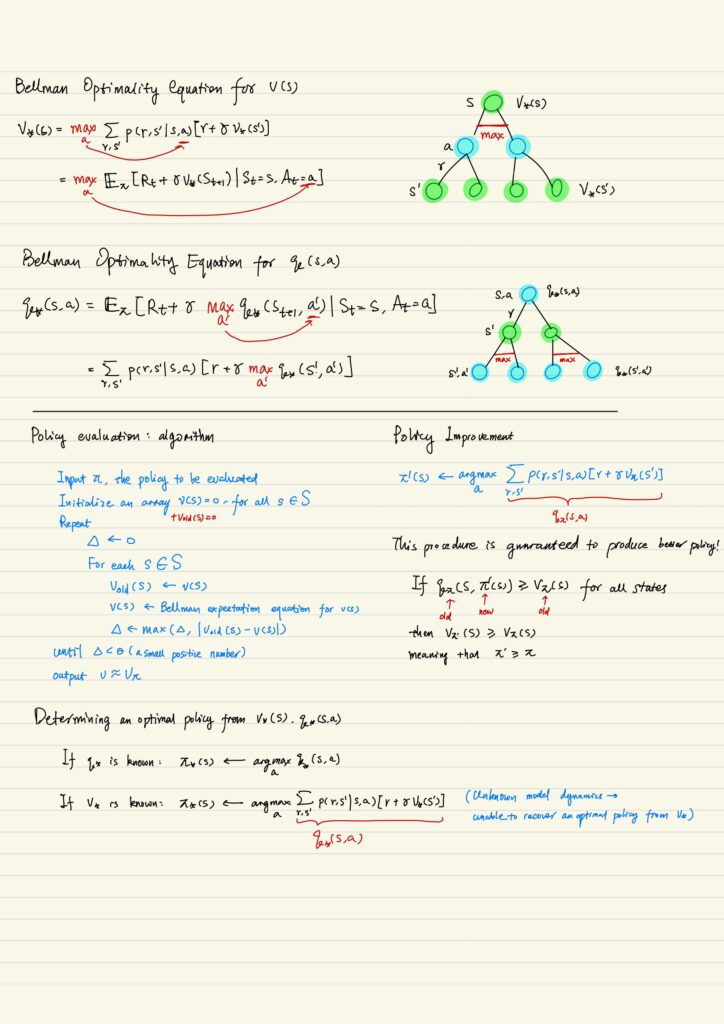 Bellman Optimality Equation for V(s)
V*(s) = max_a Σ_{r,s'} p(r,s'|s,a)[r+γV*(s')]
= max_a 𝔼π[Rt+γV*(St+1)|St=s, At=a]
s V*(s)
max
a
r
s' V*(s')
Bellman Optimality Equation for q(s,a)
q*(s,a) = 𝔼π[Rt+γ max_a' q*(St+1, a')|St=s, At=a]
= Σ_{r,s'} p(r,s'|s,a)[r+γ max_a' q*(s',a')]
s,a q*(s,a)
r
s'
max max
s',a' q*(s',a')
Policy evaluation: algorithm
Input π, the policy to be evaluated
Initialize an array V(s)=0 for all s∈S
+Vold(s)=0
Repeat
Δ ← 0
For each s∈S
Vold(s) ← V(s)
V(s) ← Bellman expectation equation for V(s)
Δ ← max(Δ, |Vold(s) - V(s)|)
until Δ<θ (a small positive number)
output V≈Vπ
Policy Improvement
π'(s) ← argmax_a Σ_{r,s'} p(r,s'|s,a)[r+γVπ(s')]
qπ(s,a)
This procedure is gunranteed to produce better policy!
If qπ(s, π'(s)) ≥ Vπ(s) for all states
old new old
then Vπ'(s) ≥ Vπ(s)
meaning that π' ≥ π
Determining an optimal policy from V*(s), q*(s,a)
If q* is known: π*(s) ← argmax_a q*(s,a)
If V* is known: π*(s) ← argmax_a Σ_{r,s'} p(r,s'|s,a)[r+γV*(s')]
q*(s,a)
(Unknown model dynamics →
unable to recover an optimal policy from V*)